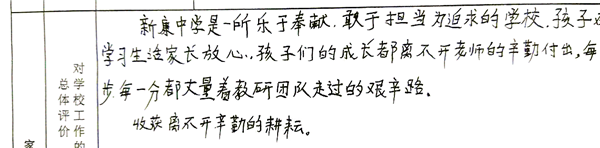 新集中学是一所乐于奉献.敢于担当为追求的学校.孩子
学习生活家长放心,.孩子们的成长都离不开老师的辛勤付出,每
步.每一分都丈量着教研团队走过的艰辛路.
收获离不开辛勤的耕耘。
对学校工作的
总体评价
家